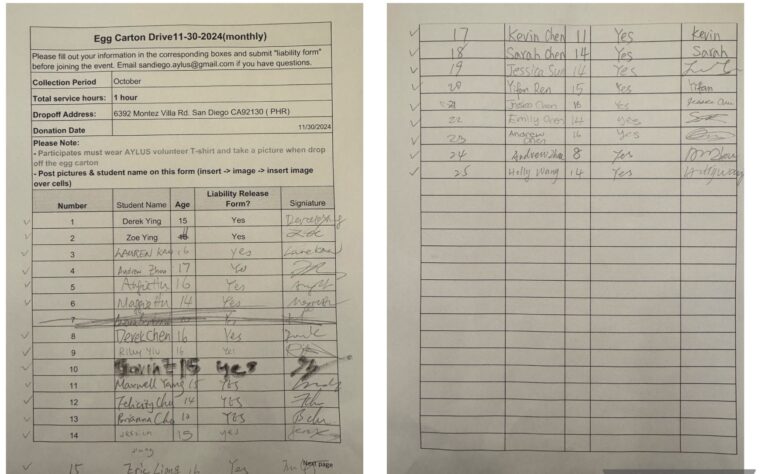 Egg Carton Drive11-30-2024(monthly)
Please fill out your information in the corresponding boxes and submit "liability form"
before joining the event. Email sandiego.aylus@gmail.com if you have questions.
Collection Period October
Total service hours: 1 hour
Dropoff Address: 6392 Montez Villa Rd. San Diego CA92130 ( PHR)
Donation Date 11/30/2024
Please Note:
- Participates must wear AYLUS volunteer T-shirt and take a picture when drop
off the egg carton
- Post pictures & student name on this form (insert -> image -> insert image
over cells)
Number Student Name Age Liability Release Form? Signature
1 Derek Ying 15 Yes
2 Zoe Ying Yes Zoe
3 LAUREN 16 yes
4 Andrew Zhou 17 Yes
5 16 Yes
6 Maggie Hu 14 Yes
7
8 Derek Chen 16 Yes
9 Riley Yiu 16 Yes
10 15 yes
11 Maxwell Yang 15 YES
12 Felicity Chu 14 YES
13 Brianna YES
14 Jessica 15 yes
15 Eric Liang 16 Yes
Next page
17 Kevin Chen 11 Yes Kevin
18 Sarah Chen 14 Yes Sarah
19 Jessica Sun 14 Yes
20 Yifan Ren 15 Yes Yifan
21 Jessica Chen 16 Yes Jessica Chen
22 Emily Chen 14 Yes
23 Andrew Chen 16 Yes
24 Andrew Zhou 8 Yes
25 Holly Wang 14 Yes Holly Wang